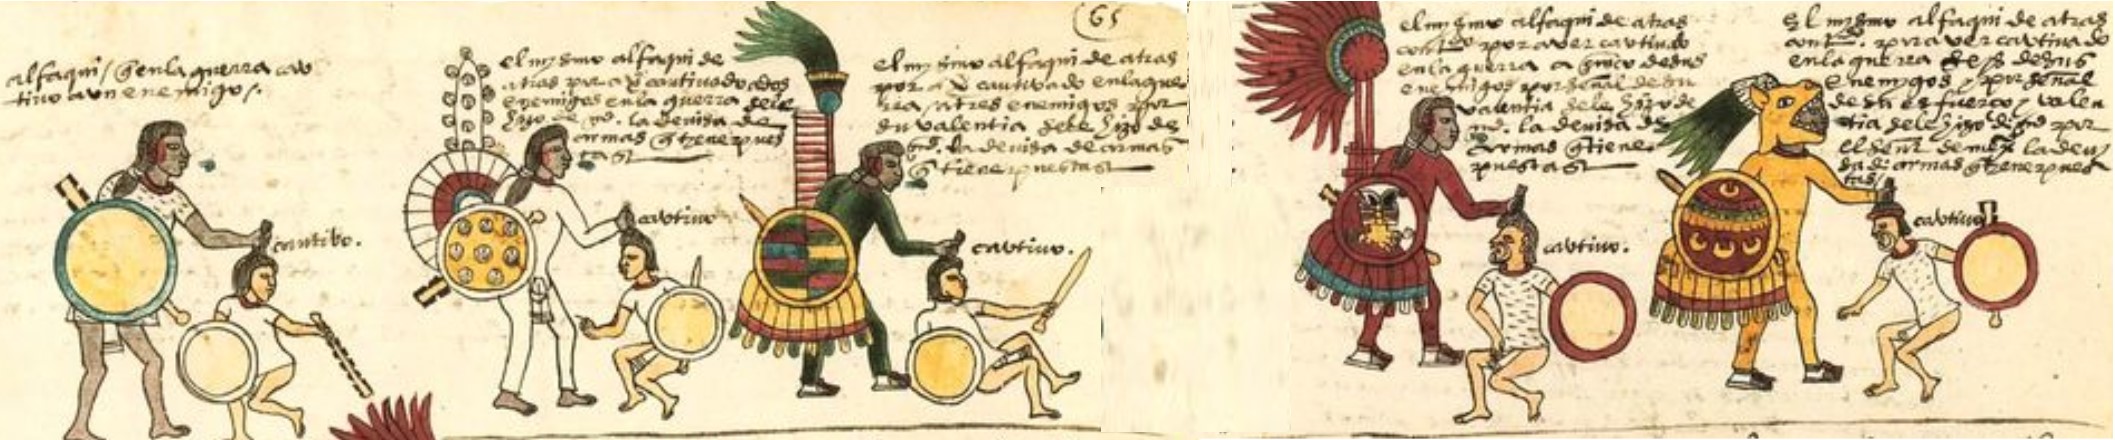 (65
alfaqui / q̄ en la guerra cau
tivo a un enemigo /.
cautibo.
el mysmo alfaqui de
atras por a u̅ cautivado a dos
enemigos en la guerra sele
hizo de md. la devisa de
armas q̄ tiene pues
tas
cautivo
el mysmo alfaqui de atras
por a u̅ cautivado en la gue
rra / a tres enemigos por
su valentia sele hizo de
md. la devisa de armas
q̄ tiene puestas
cautivo.
el mysmo alfaqui de atras
por aver cautivado
en la guerra a cinco de sus
enemigos por señal de su
valentia sele hizo de
md. la devisa de
armas q̄ tiene
puestas
cautivo.
El mysmo alfaqui de atras
por aver cautivado
en la guerra seys de sus
enemygos / y por señal
de su esfuerço / y valen
tia sele hizo de md por
el señor de mexico la devi
sa de armas q̄ tiene pues
tas /
cautivo